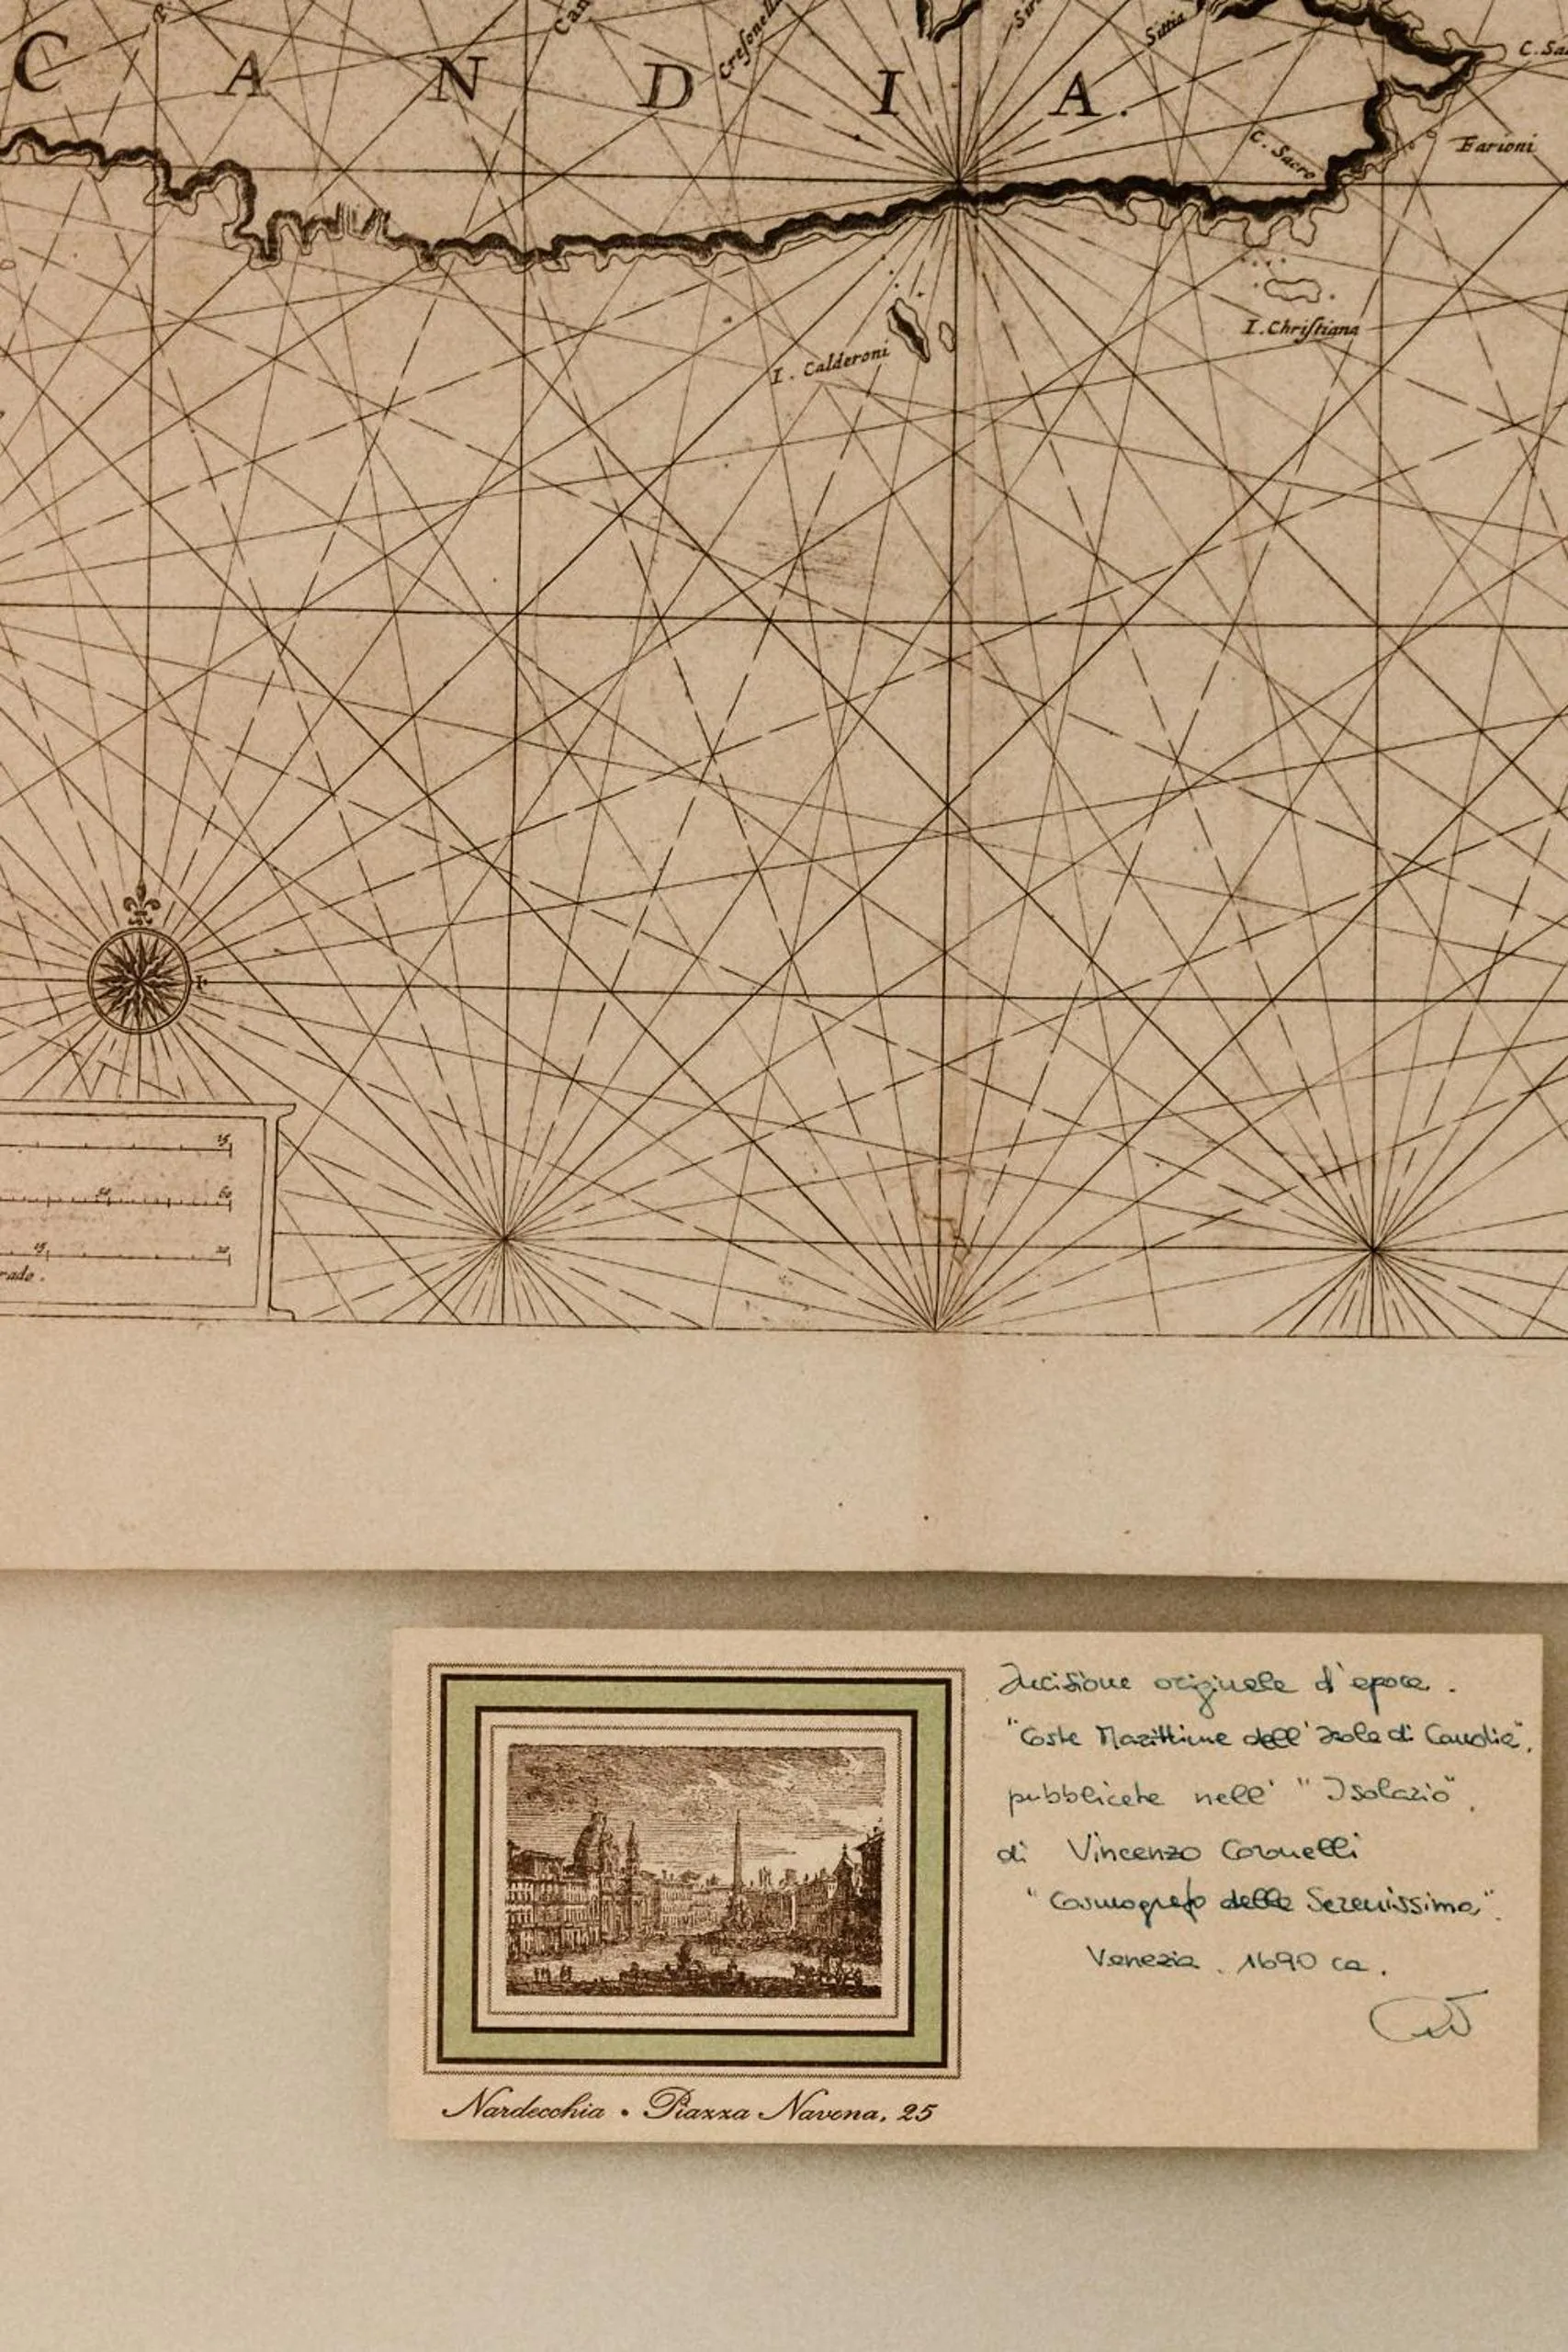 C A N D I A.
Sittia
C. Sacro
Farioni
I. Calderoni
I. Chriſtiana
15
50 60
15 20
Incisione originale d'epoca.
"Coste Marittime dell'Isola di Candia",
pubblicate nell' "Isolario",
di Vincenzo Coronelli
"Cosmografo della Serenissima".
Venezia. 1690 ca.
Nardecchia • Piazza Navona, 25